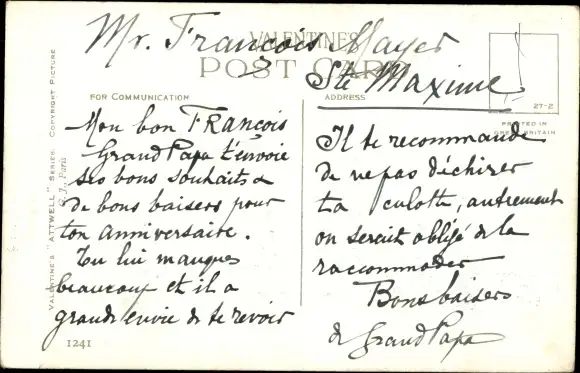 Mr. François Mayer
VALENTINE'S
POST CARD
Ste Maxime
FOR COMMUNICATION
ADDRESS
27-2
PRINTED IN
GREAT BRITAIN
VALENTINE'S "ATTWELL" SERIES. COPYRIGHT PICTURE
Paris
Mon bon FRANÇOIS
Grand Papa t'envoie
ses bons souhaits &
de bons baisers pour
ton anniversaire.
Tu lui manques
beaucoup et il a
grande envie de te revoir
1241
Il te recommande
de ne pas déchirer
ta culotte, autrement
on serait obligé de la
raccommoder
Bons baisers
de Grand Papa